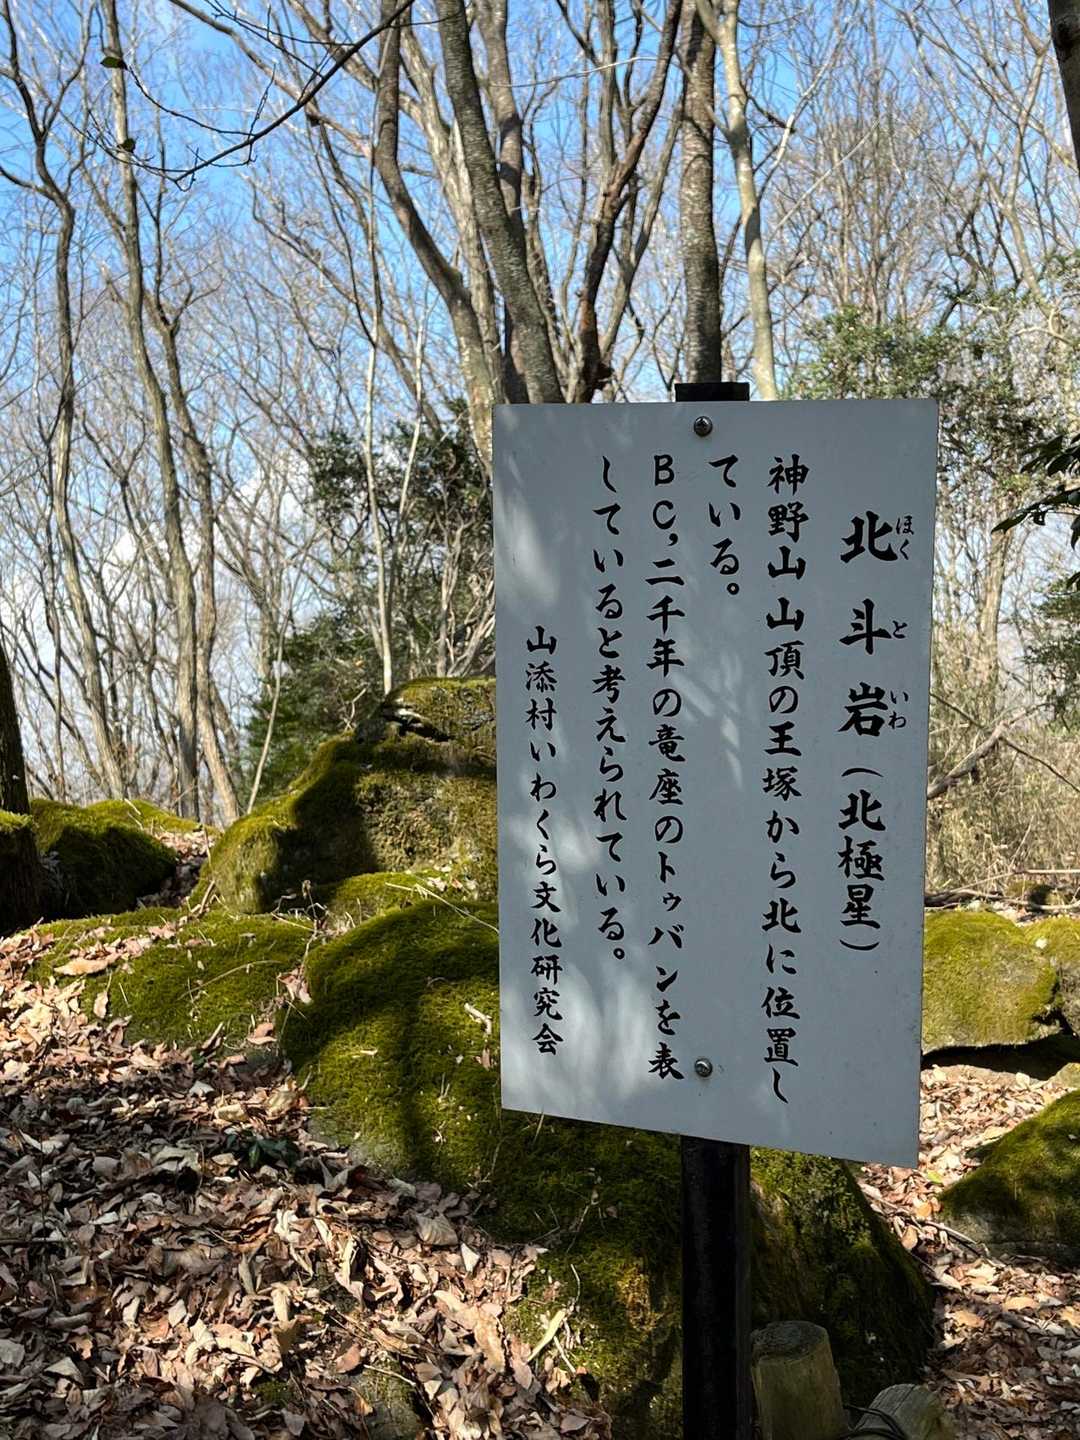 北斗岩(北極星)
ほくといわ
神野山山頂の王塚から北に位置し
ている。
BC,二千年の竜座のトゥバンを表
していると考えられている。
山添村いわくら文化研究会